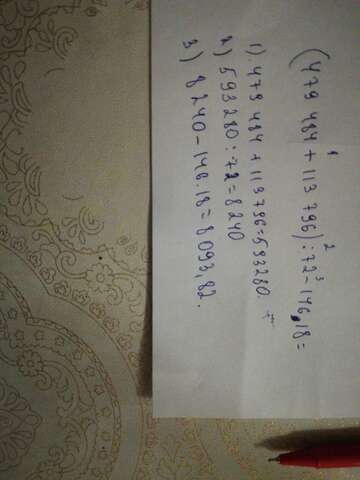 (479 484 + 113 796) : 72 - 146,18 =
1 2 3
1). 479 484 + 113 796 = 593280. +
2) 593280 : 72 = 8240
3) 8240 - 146.18 = 8 093,82.